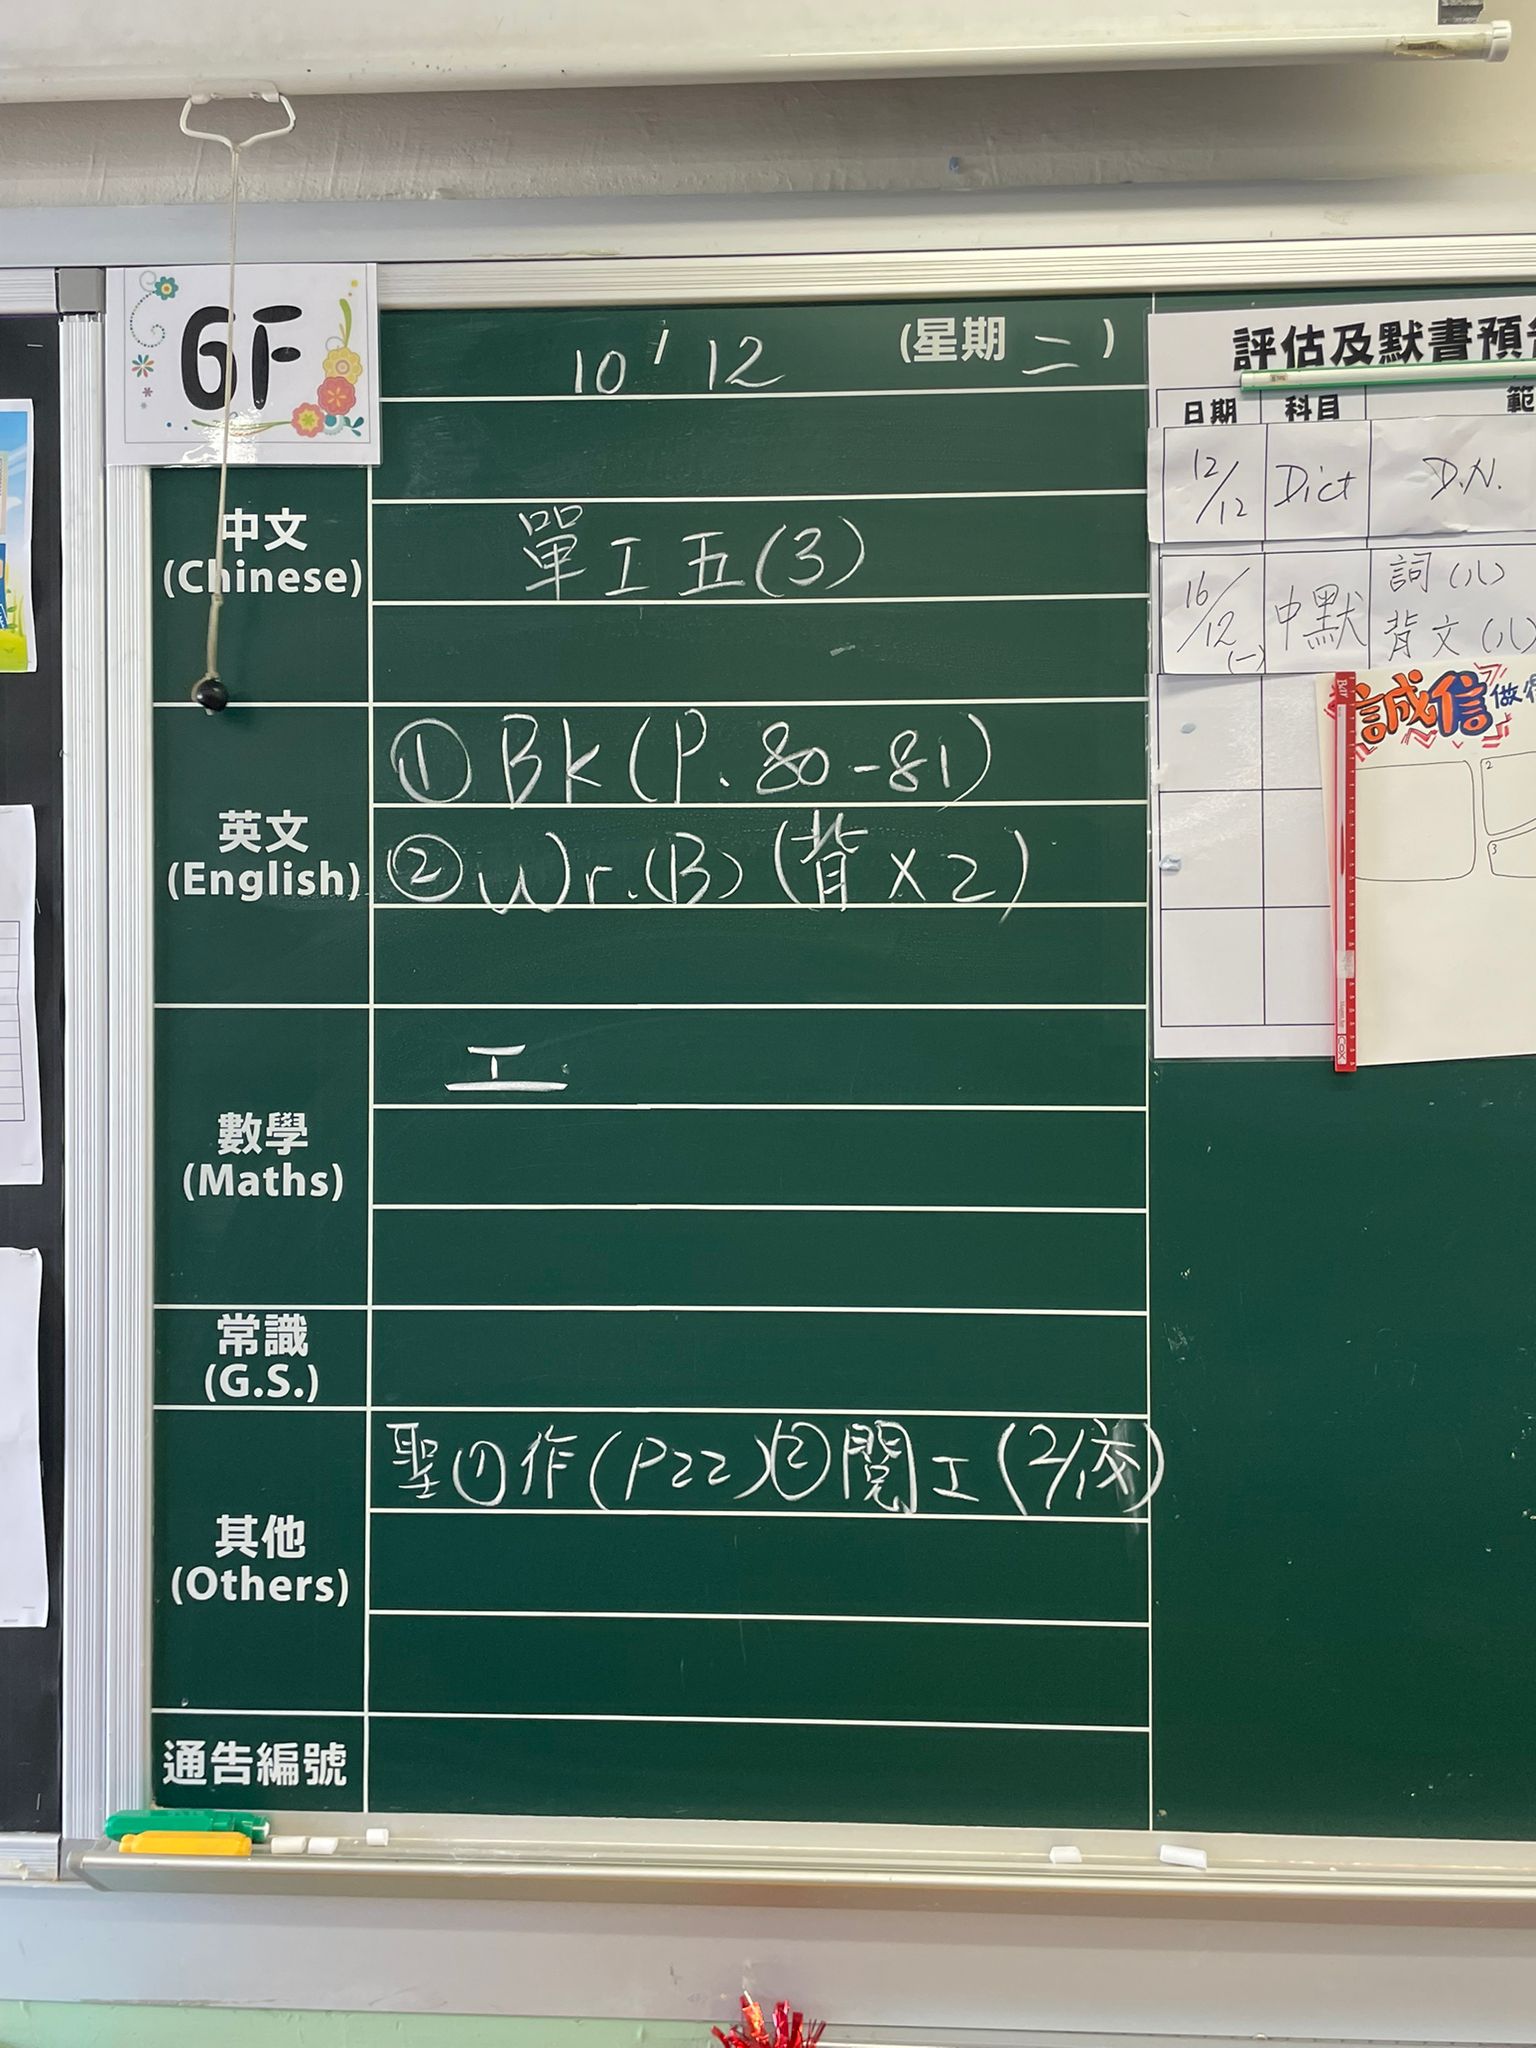 6F
10/12 (星期二)
中文
(Chinese)
單工五(3)
英文
(English)
① Bk (P. 80-81)
② Wr.(B) (背 x 2)
數學
(Maths)
工
常識
(G.S.)
其他
(Others)
聖①作(P22)②閱工(2/1交)
通告編號
評估及默書預
日期 科目 範
12/12 Dict D.N.
16/12 (一) 中默 詞(八)
背文(八)
誠信 做
2
3